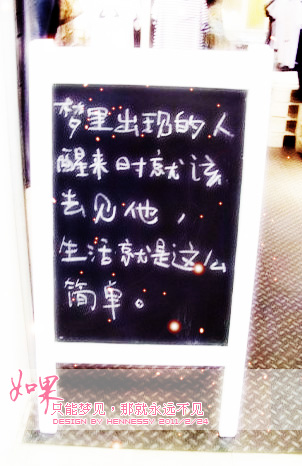 梦里出现的人
醒来时就该
去见他，
生活就是这么
简单。
如果
只能梦见，那就永远不见
DESIGN BY HENNESSY 2011/2/24